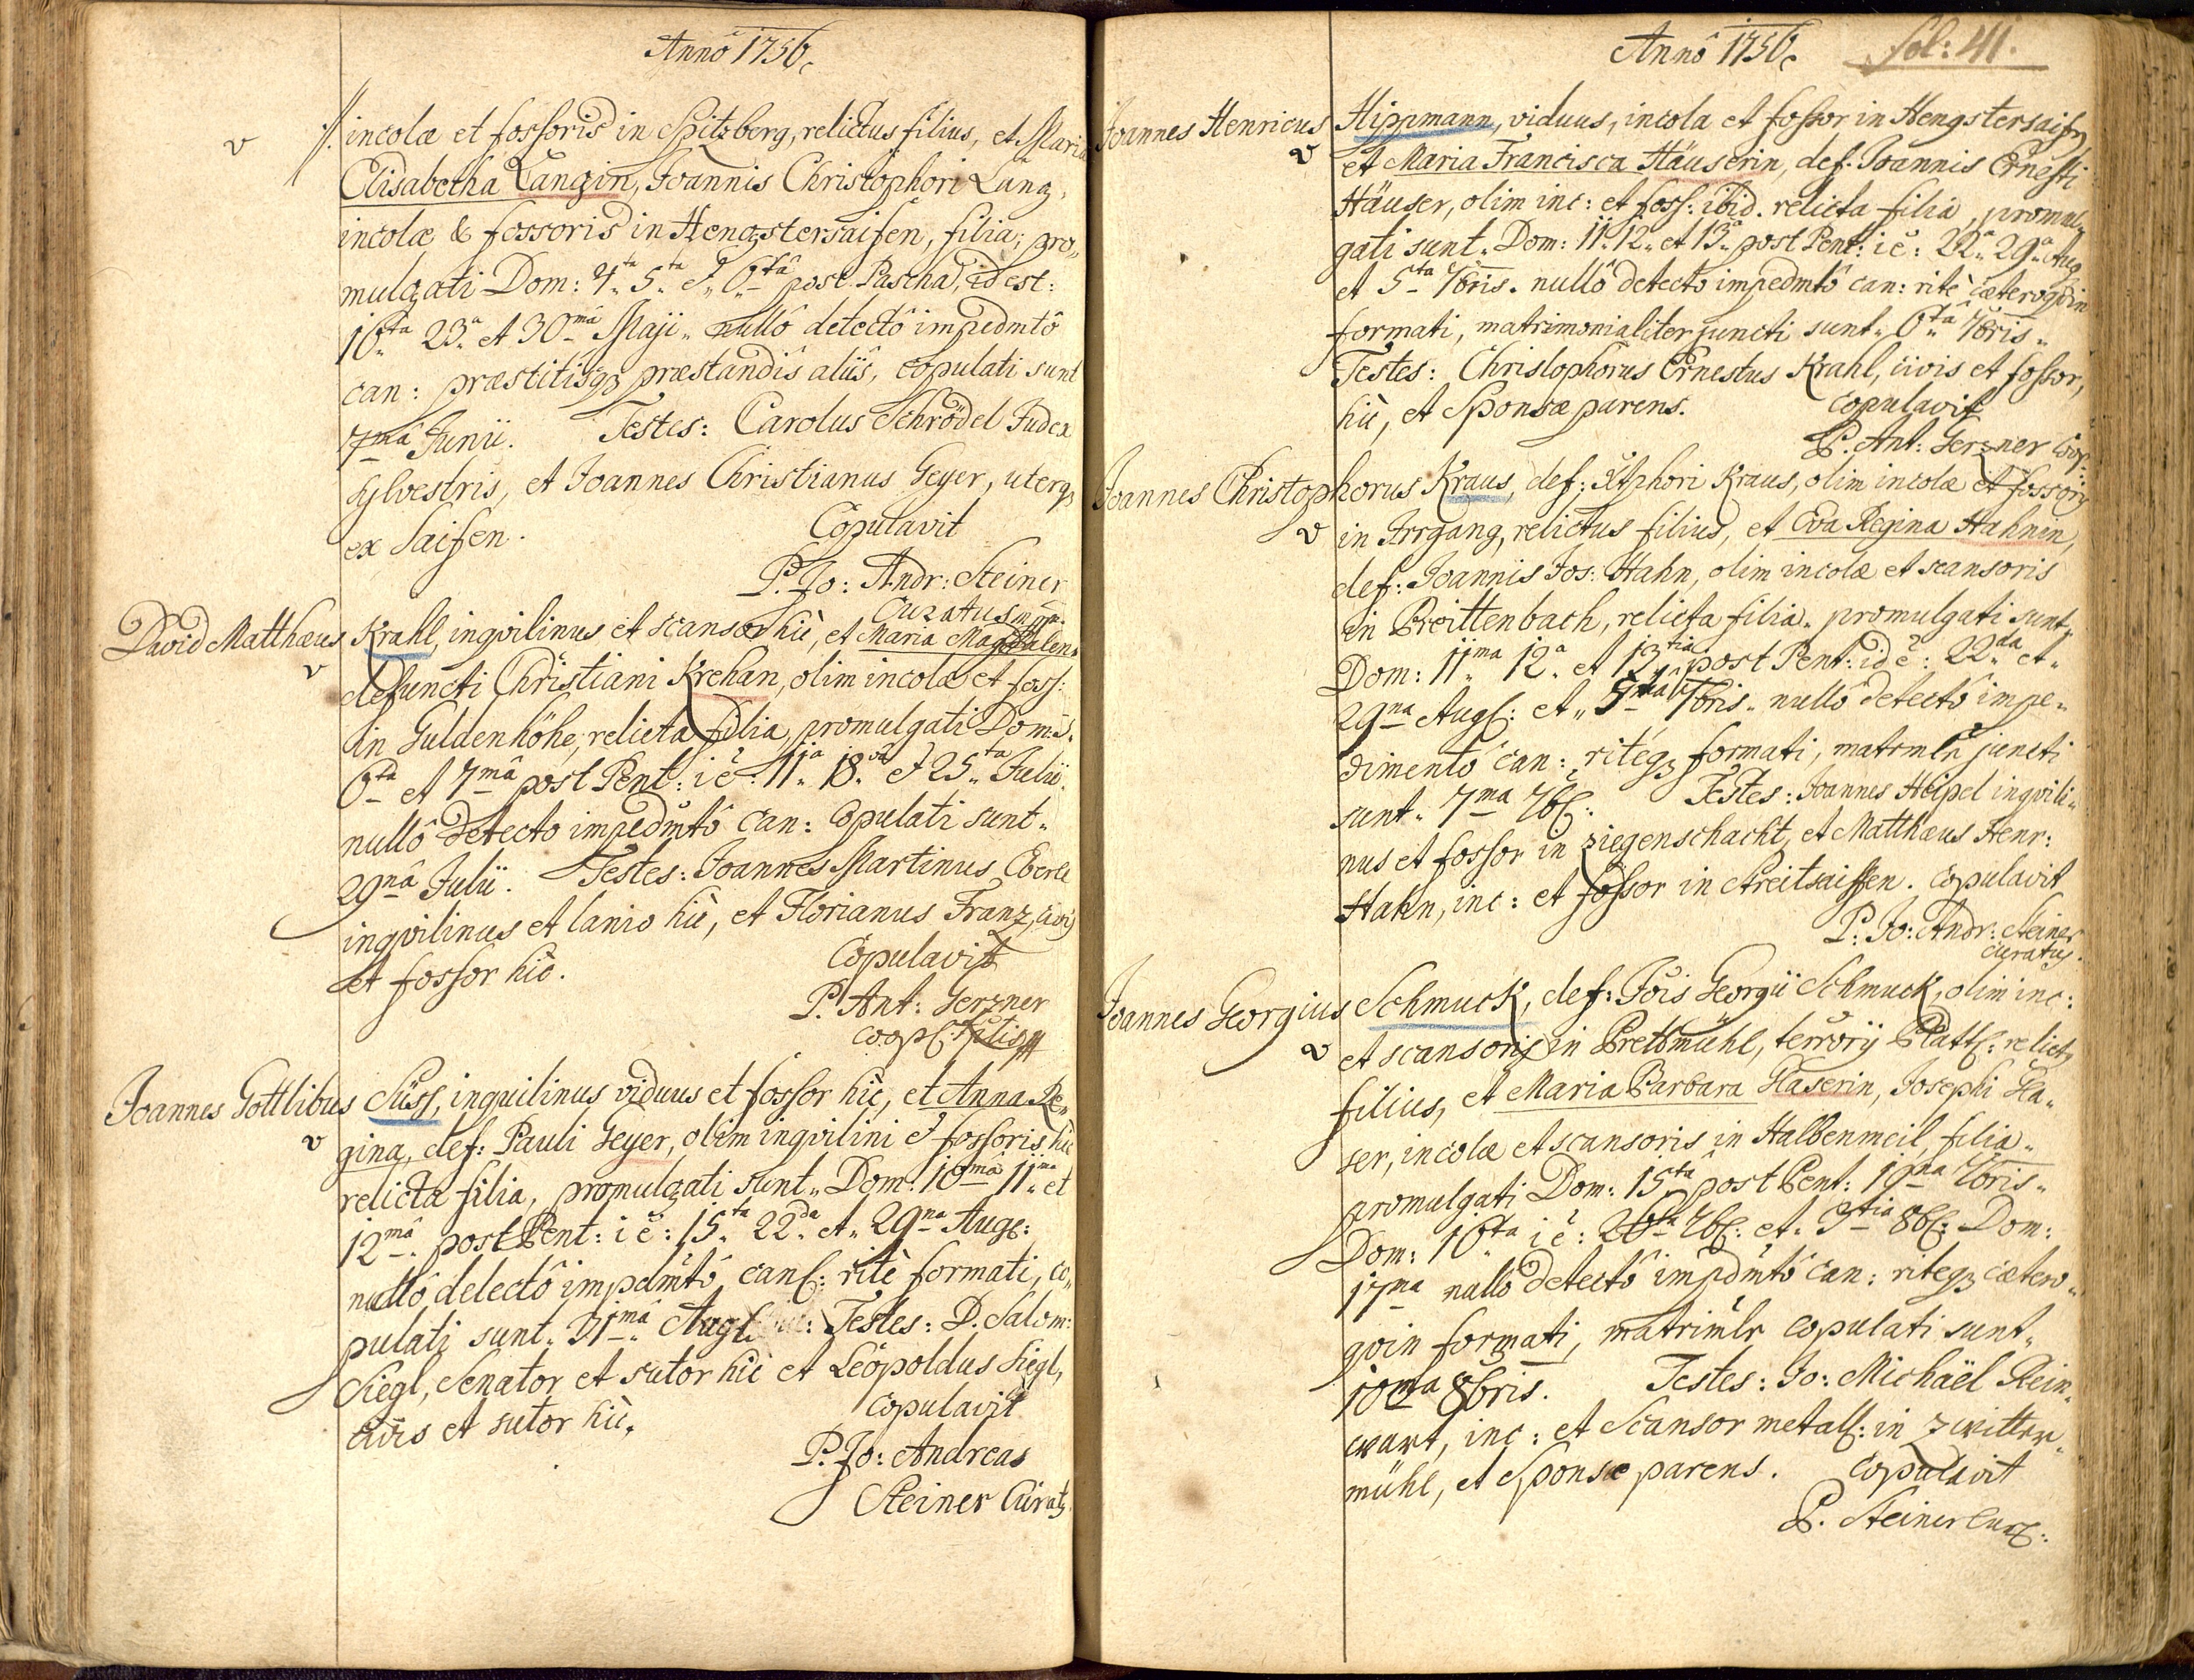 Anno 1756.
//. incolæ et fossoris in Spitzberg, relictus filius, et Maria
Elisabetha Langin, Joannis Christophori Lang,
incolæ & fossoris in Hengstersaifen, filia; pro„
mulgati Dom: 4.ta 5.ta et 6.tâ post Pascha, id est:
16ta 23.a et 30mâ Maji. nullô detectô impedmtô
can: præstitisq3 præstandis aliis, copulati sunt
7mâ Junii. Testes: Carolus Schrödel Judex
sylvestris, et Joannes Christianus Geyer, uterq3
ex Saifen. Copulavit
P. Jo: Andr: Steiner
Curatus mpr.
David Matthæus Krahl, inqvilinus et scansor hic, et Maria Magdalena
v defuncti Christiani Krehan, olim incolæ et foss:
in Guldenhöhe, relicta filia, promulgati Dom: 5.
6ta et 7mâ post Pent: i ē: 11.a 18.va et 25.ta Julii.
nullô detecto impedmtô can: copulati sunt.
29nâ Julii. Testes: Joannes Martinus Eberl
inqvilinus et lanio hic, et Florianus Franz, civis
et fossor hic. Copulavit
P. Ant: Gerzner
Coop:
Joannes Gottlibus Süss, inquilinus viduus et fossor hic, et Anna Re„
v gina, def: Pauli Geyer, olim inqvilini et fossoris hic
relicta filia, promulgati sunt„ Dom: 10mâ 11.ma et
12mâ. post Pent: i ē: 15.ta 22.da et 29na Aug:
nullô detectô impdmtô can: ritè formati, co„
pulati sunt. 31.mâ Aug: Testes: D. Salom:
Siegl, Senator et sutor hic et Leopoldus Siegl,
civis et sutor hic. Copulavit
P. Jo: Andreas
Steiner Curatg
Anno 1756. fol: 41.
Joannes Henricus Hippmann, viduus, incola et fossor in Hengstersaifen
v et Maria Francisca Häuserin, def: Joannis Ernesti
Häuser, olim inc: et foss: ibid. relicta filia, promul„
gati sunt. Dom: 11. 12. et 13.a post Pent: i ē: 22.a 29.a Aug
et 5ta 7bris. nullô detecto impedmtô can: ritè cæteroqvin
formati, matrimonialiter juncti sunt„ 6.ta 7bris„
Testes: Christophorus Ernestus Krahl, civis et fossor,
hic, et Sponsæ parens. Copulavit
P. Ant: Gerzner Coop:
Joannes Christophorus Kraus, def: Xtphori Kraus, olim incolæ et fossoris
v in Irrgang, relictus filius, et Eva Regina Hahnin,
def: Joannis Jos: Hahn, olim incolæ et scansoris
in Breittenbach, relicta filia. promulgati sunt„
Dom: 11ma 12a et 13tia post Pent: id ē: 22da et„
29na Aug: et„ 5ta 7bris. nullô detectô impe„
dimentô can: ritéq3 formati, matrmlr juncti
sunt„ 7ma 7b: Testes: Joannes Heipel inqvili„
nus et fossor in Ziegenschacht, et Matthæus Henr:
Hahn, inc: et fossor in Streitsaiffen. Copulavit
P. Jo: Andr: Steiner
Curatus.
Joannes Georgius Schmuck, def: Jōis Georgii Schmuck, olim inc:
v et scansoris in Bretmühl, terrorij Platt: relict9
filius, et Maria Barbara Haserin, Josephi Ha„
ser, incolæ et scansoris in Halbenmeil, filia„
promulgati Dom: 15ta post Pent: 19na 7bris„
Dom: 16ta i ē: 26ta 7b: et„ 3tia 8b: Dom:
17ma nullô detectô impdmtô can: riteq3 cætero„
qvin formati, matrimlr copulati sunt„
10ma 8bris. Testes: Jo: Michaël Rein„
wart, inc: et Scansor metall: in Zwitter„
mühl, et Sponsæ parens. Copulavit
P. Steiner Cur: